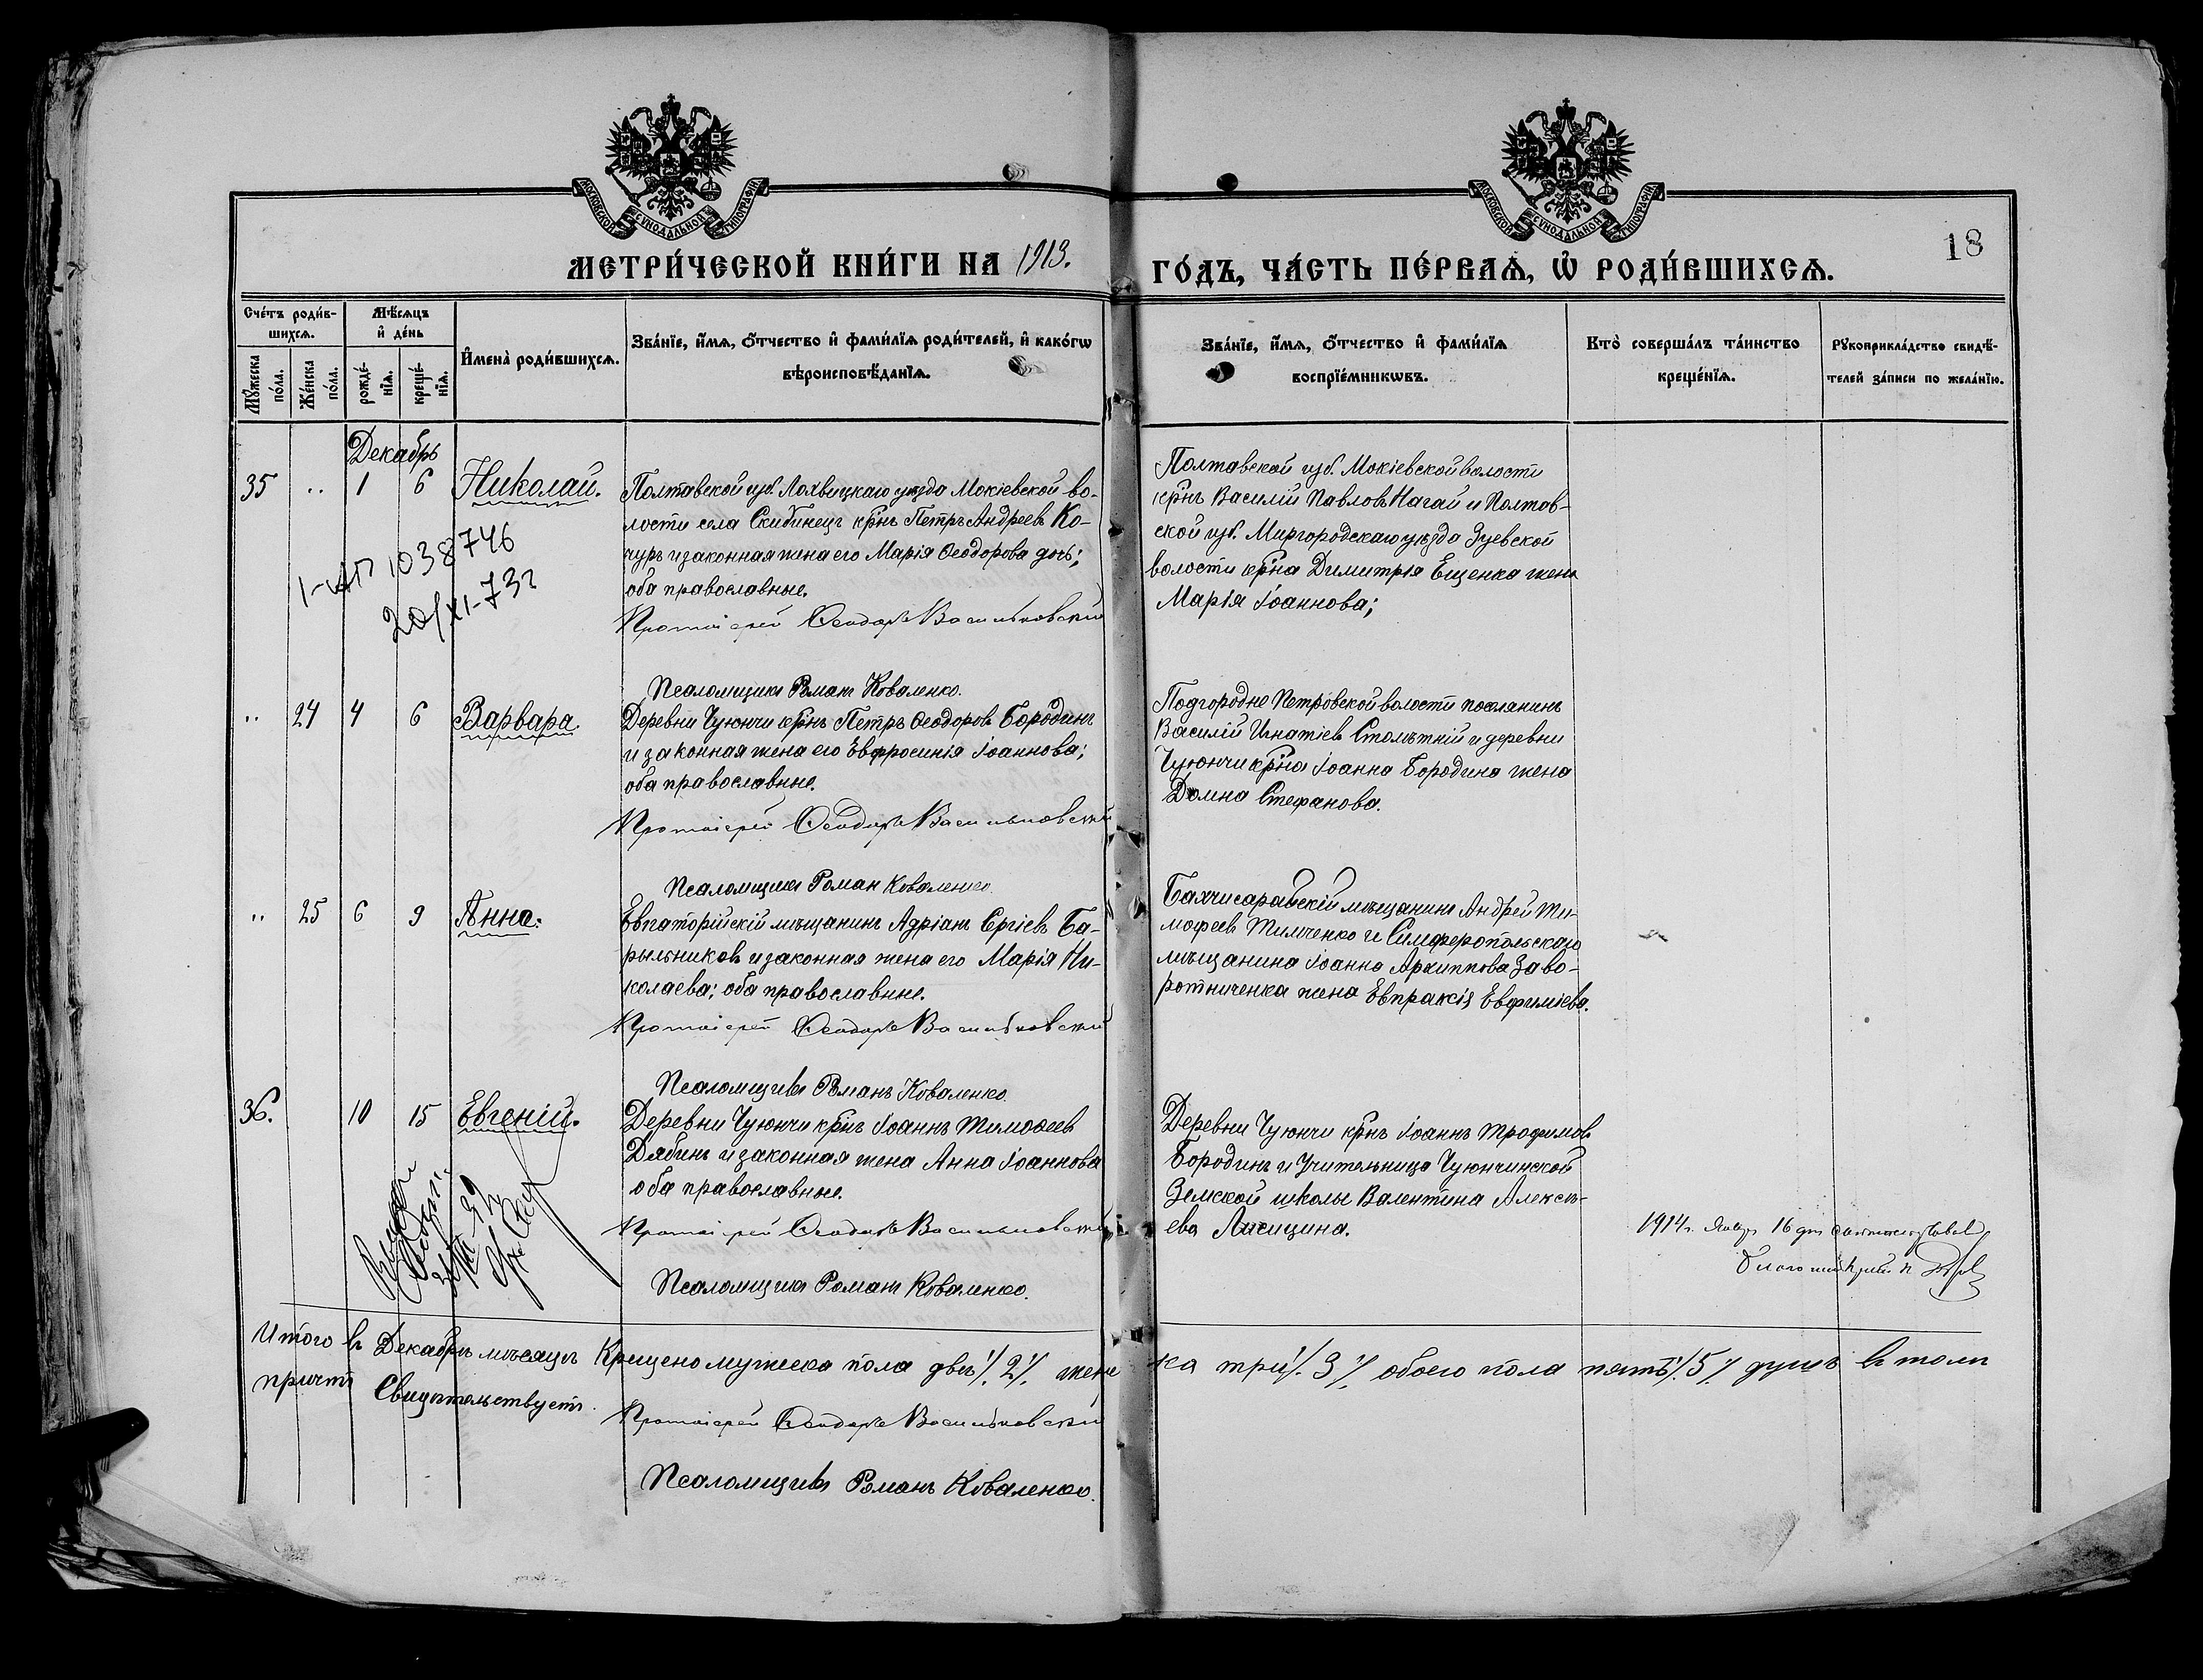 МОСКОВСКОЙ СѴНОДАЛЬНОЙ ТИПОГРАФІИ
МОСКОВСКОЙ СѴНОДАЛЬНОЙ ТИПОГРАФІИ
18
МЕТРИ́ЧЕСКОЙ КНИ́ГИ НА 1913. ГО́ДЪ, ЧА́СТЬ ПЕ́РВАѦ, Ѡ҆ РОДИ́ВШИХСѦ.
Сче́тъ роди́в-
шихсѧ.
Мꙋ́жеска по́ла.
Же́нска по́ла.
Мѣ́сѧцъ
и҆ де́нь
рожде́-
нїѧ.
креще́-
нїѧ.
И҆мена̀ роди́вшихсѧ.
Зва́нїе, и҆́мѧ, ѻ҆́тчество и҆ фамѝлїѧ роди́телей, и҆ како́гѡ
вѣроисповѣ́данїѧ.
Зва́нїе, и҆́мѧ, ѻ҆́тчество и҆ фамѝлїѧ
воспрїе́мникѡвъ.
Кто̀ соверша́лъ та́инство
креще́нїѧ.
Рꙋкоприкла́дство свидѣ́-
телей за́писи по жела́нїю.
Декабрь
35 .. 1 6 Николай.
Полтавской губ. Лохвицкаго уѣзда Мокіевской во-
лости села Скибинецъ крнъ Петръ Андреевъ Ко-
чуръ и законная жена его Марія Ѳеодорова дочь;
оба православные.
Протоіерей Ѳеодоръ Васильковскій
Псаломщикъ Романъ Коваленко.
Полтавской губ. Мокіевской волости
крнъ Василій Павловъ Нагай и Полтав-
ской губ. Миргородскаго уѣзда Зуевской
волости крна Димитрія Ещенка жена
Марія Іоаннова;
1038746
20/XI-73г
.. 24 4 6 Варвара.
Деревни Чуюнчи крнъ Петръ Ѳеодоровъ Бородинъ
и законная жена его Евфросинія Іоаннова;
оба православные.
Протоіерей Ѳеодоръ Васильковскій
Псаломщикъ Роман Коваленко.
Подгородне Петровской волости поселянинъ
Василій Игнатіевъ Столѣтній и деревни
Чуюнчи крна Іоанна Бородина жена
Домна Стефанова.
.. 25 6 9 Анна.
Евпаторійскій мѣщанинъ Адріанъ Сергіевъ Ба-
рыльниковъ и законная жена его Марія Ни-
колаева; оба православные.
Протоіерей Ѳеодоръ Васильковскій
Псаломщикъ Романъ Коваленко.
Бахчисарайскій мѣщанинъ Андрей Ти-
мофеевъ Тимченко и Симферопольскаго
мѣщанина Іоанна Архиппова Заво-
ротниченка жена Евпраксія Евфиміева.
36. 10 15 Евгеній.
Деревни Чуюнчи крнъ Іоаннъ Тимоѳеевъ
Дябинъ и законная жена Анна Іоаннова
оба православные.
Протоіерей Ѳеодоръ Васильковскій
Псаломщикъ Романъ Коваленко.
Деревни Чуюнчи крнъ Іоаннъ Трофимовъ
Бородинъ и Учительница Чуюнчинской
Земской школы Валентина Алексѣ-
ева Лисицина.
1914г. Январ 16 дня
Итого въ Декабрѣ мѣсяцѣ Крещено мужеска пола два /.2/. женска три /.3/. обоего пола пять /.5/. душъ въ томъ
причтъ Свидѣтельствуетъ.
Протоіерей Ѳеодоръ Васильковскій
Псаломщикъ Романъ Коваленко.